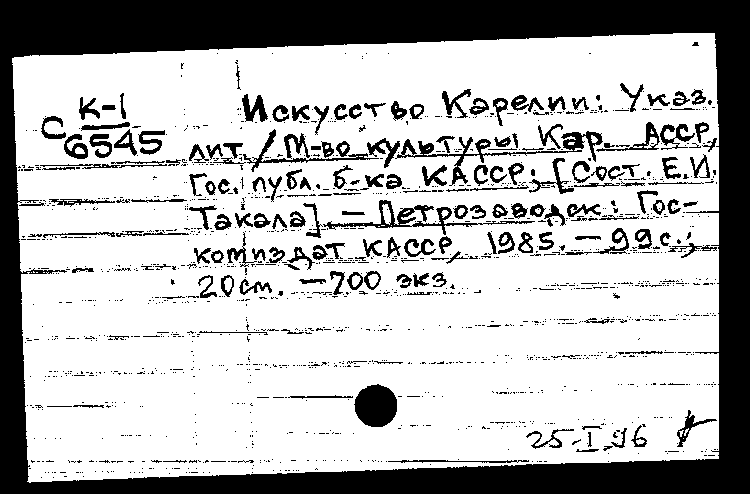 К-1
С 6545
Искусство Карелии: Указ.
лит. / М-во культуры Кар. АССР,
Гос. публ. б-ка КАССР; [Сост. Е.И.
Такала]. — Петрозаводск: Гос-
комиздат КАССР, 1985. — 99 с.;
20 см. — 700 экз.
25-I-96